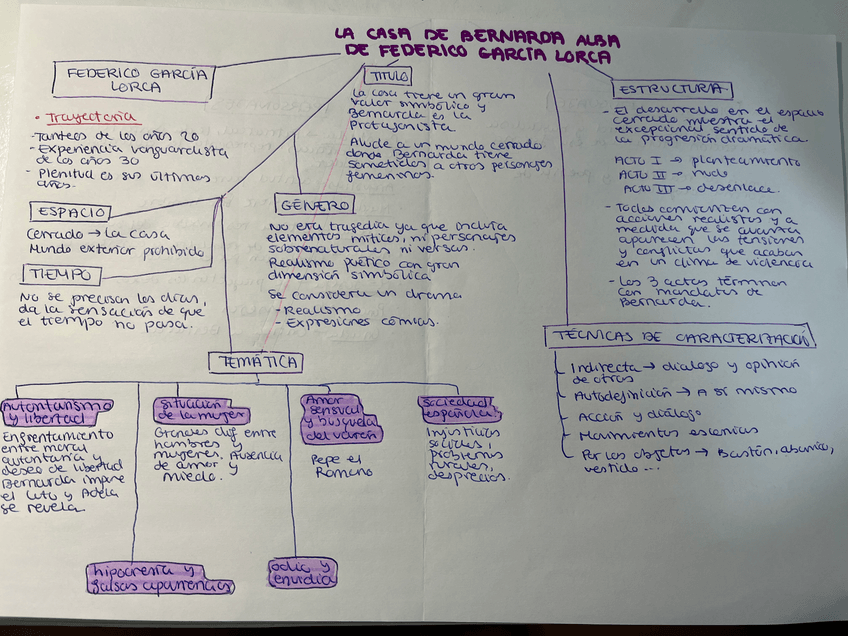 LA CASA DE BERNARDA ALBA
DE FEDERICO GARCÍA LORCA
FEDERICO GARCÍA
LORCA
• Trayectoria
- Tanteos de los años 20
- Experiencia vanguardista
de los años 30
- Plenitud es sus últimos
años.
TITULO
La casa tiene un gran
valor simbólico y
Bernarda es la
Protagonista
Alude a un mundo cerrado
donde Bernarda tiene
sometidos a otros personajes
femeninos.
ESTRUCTURA
- El desarrollo en el espacio
cerrado muestra el
excepcional sentido de
la progresión dramática.
ACTO I → planteamiento
ACTO II → nudo
ACTO III → desenlace.
- Todos comienzan con
acciones realistas y a
medida que se avanza
aparecen las tensiones
y conflictos que acaban
en un clima de violencia
- Los 3 actos terminan
con mandatos de
Bernarda.
ESPACIO
Cerrado → la casa
Mundo exterior prohibido
TIEMPO
No se precisan los días,
da la sensación de que
el tiempo no pasa.
GÉNERO
No era tragedia ya que incluía
elementos míticos, ni personajes
sobrenaturales ni versos.
Realismo poético con gran
dimensión simbólica
Se considera un drama
- Realismo
- Expresiones cómicas.
TÉCNICAS DE CARACTERIZACIÓ
Indirecta → dialogo y opinión
de otros
Autodefinición → A sí mismo
Acción y diálogo
Movimientos escénicos
Por los objetos → Bastón, abanico,
vestido...
TEMÁTICA
Autoritarismo
y libertad
Enfrentamiento
entre moral
autoritaria y
deseo de libertad
Bernarda impone
el luto y Adela
se revela.
Situación
de la mujer
Grandes dif entre
hombres y
mujeres. Ausencia
de amor y
miedo.
Amor
sensual
y busqueda
del varón
Pepe el
Romano
sociedad
española
Injusticias
sociales,
problemas
rurales,
desprecios.
hipocresía y
falsas apariencias
odio y
envidia